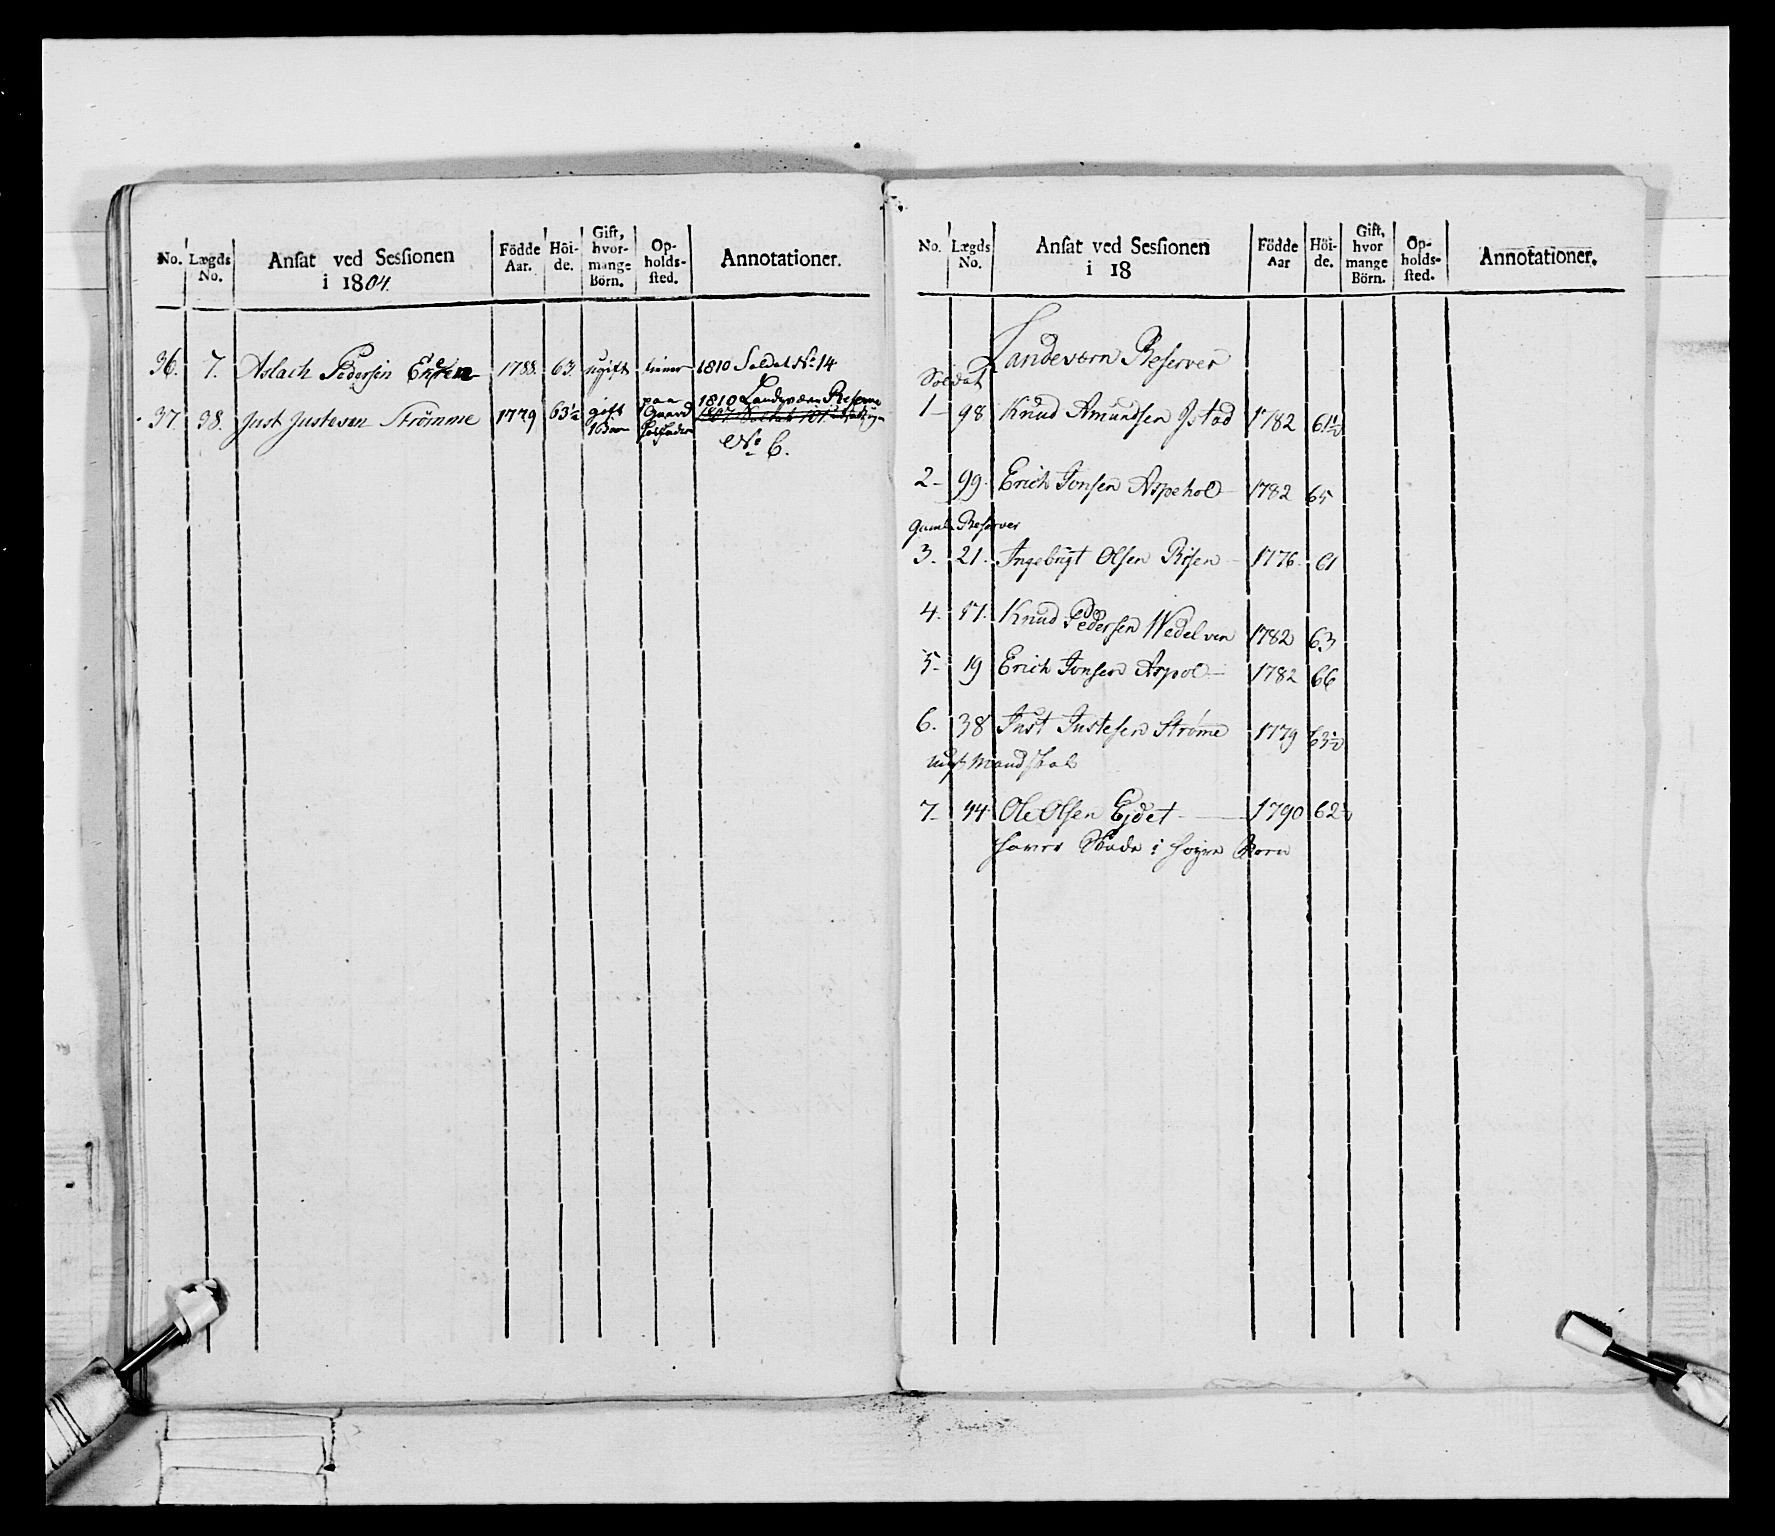 No. Lægds No. Ansat ved Sessionen i 1804. Födde Aar. Höi-de. Gift, hvor-mange Börn. Op-holds-sted. Annotationer.
36. 7. Aslach Pedersen 1788. 63. ugift tiener 1810 Soldat No 14
37 38. Just Justesen Strömme 1779 63½ gift paa Gaard 1810 Landeværn Reserve
No 6.
No. Lægds No. Ansat ved Sessionen i 18 Födde Aar Höi-de. Gift, hvor mange Börn. Op-holds-sted. Annotationer.
Landevern Reserver
Soldat
1 – 98 Knud Amundsen Istad 1782 61½
2 – 99. Erich Jonsen Aspehol – 1782 65
Gamle Reserver
3. 21. Ingebrigt Olsen Rösen – 1776. 61
4. 17. Knud Pedersen Wedelven 1782 63
5 – 19 Erich Jonsen Aspol – 1782 66
6. 38 Just Justesen Strøme 1779 63½
ungt Mandskab
7 – 44 Ole Olsen Ejdet – 1790 62
haver Skade i høyre